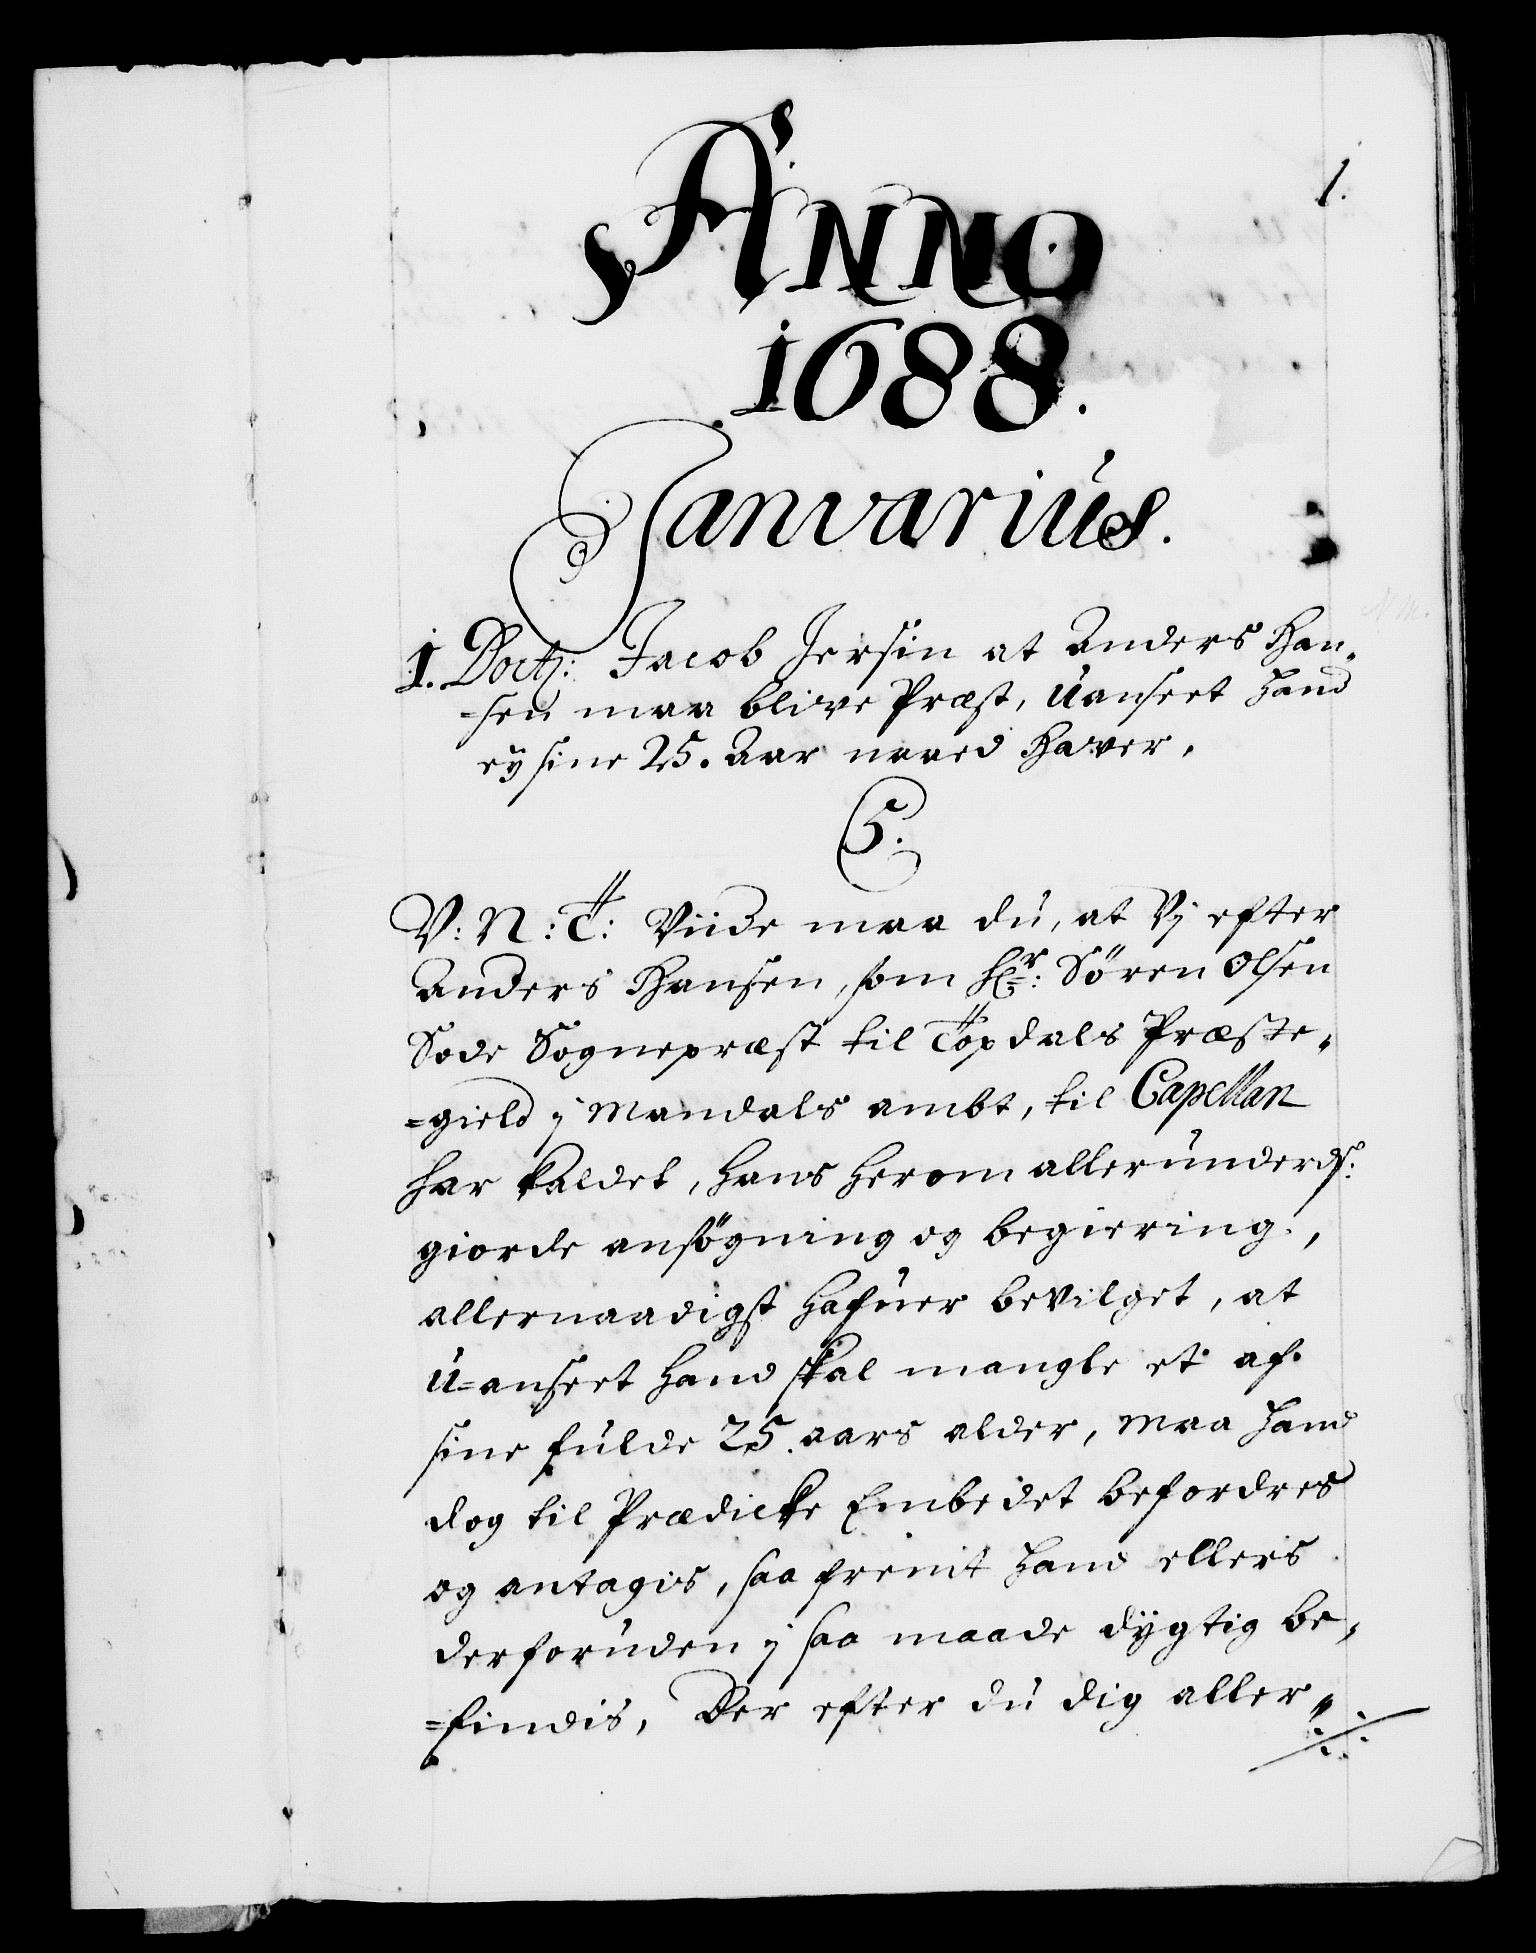 1.
ANNO
1688.
Janvarius.
1. Doct: Jacob Jersin at Anders Han„
=sen maa blive Præst, Uanseet hand
ey sine 25. Aar naaed Haver.
C5.
V: N: T: Viide maa du, at Vj efter
Anders Hansen, som Hr: Sören Olsen
Sode Sognepræst til Topdals Præste„
=gield j Mandals ambt, til Capellan
har kaldet, hans herom allerunderds:
giorde ansögning og begiering,
allernaadigst hafuer bevilget, at
U=anseet hand skal mangle et af
sine fulde 25. aars alder, maa hand
dog til Prædicke Embedet befordres
og antagis, saa fremt hand ellers
derforuden j saa maade dygtig be„
=findis, Der efter du dig aller„